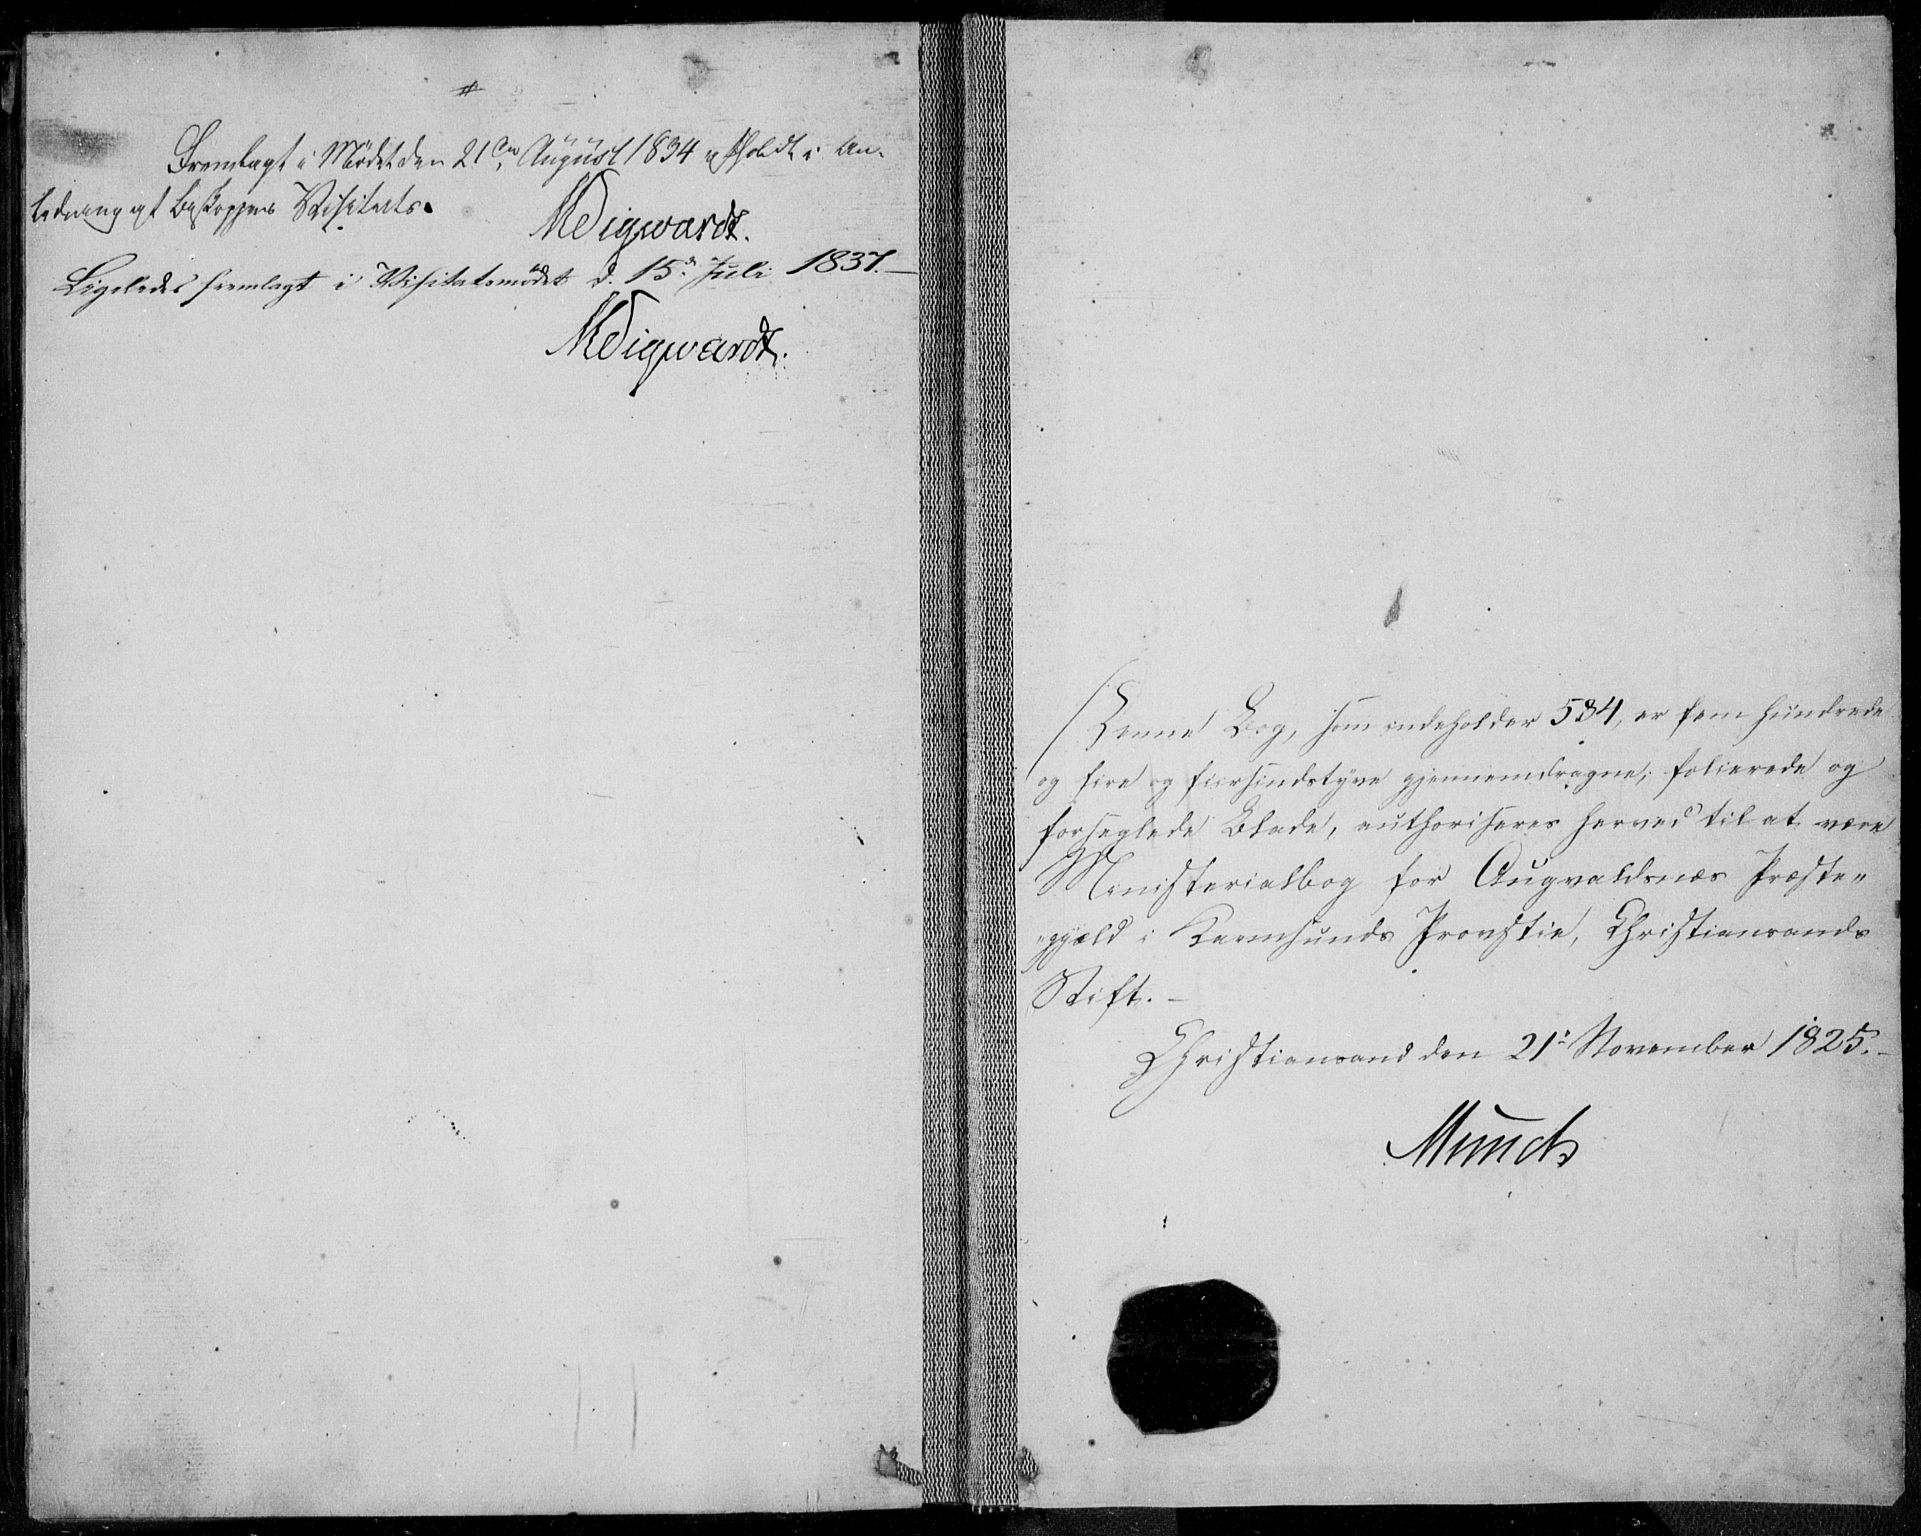 Fremlagt i Mødet den 21de August 1834 afholdt i An-
ledning af Biskoppens Visitats.
MSigwardt.
Ligeledes fremlagt i Visitatsmødet d. 15de Juli 1837.—
MSigwardt.
Denne Bog, som indeholder 584, er fem hundrede
og fire og fiirsindstyve gjennemdragne, folierede og
forseglede Blade, authoriseres herved til at være
Ministerialbog for Augvaldsnæs Præste-
gjæld i Karmsunds Provstie, Christiansands
Stift.—
Christiansand den 21de November 1825.—
Munch